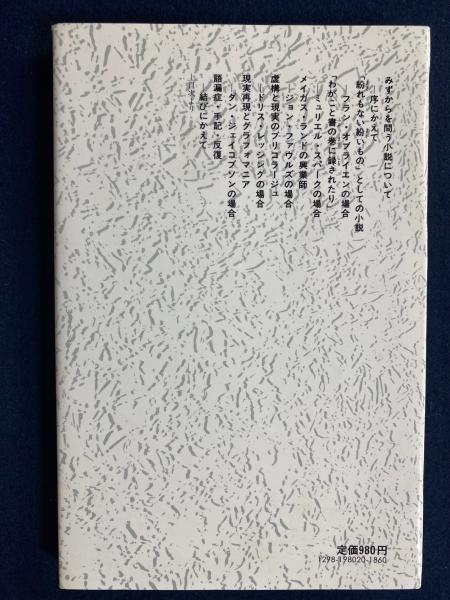 みずからを問う小説について
―序にかえて
「紛れもない紛いもの」としての小説
―フラン・オブライエンの場合
「わがこと書の巻に録されたり」
―ミュリエル・スパークの場合
メイガス・ランドの興業師
―ジョン・ファウルズの場合
虚構と現実のブリコラージュ
―ドリス・レッシングの場合
現実再現とグラフォマニア
―ダン・ジェイコブソンの場合
語漏症・手記・反復
―結びにかえて
―目次より
定価980円
1298-198020-1860